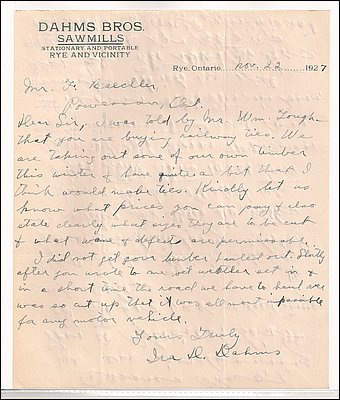 DAHMS BROS.
SAWMILLS
STATIONARY AND PORTABLE
RYE AND VICINITY
Rye, Ontario, Nov. 22 1927
Mr. F. Beechler,
Powassan, Ont.
Dear Sir, I was told by Mr. Wm. Tough
that you are buying railway ties. We
are taking out some of our own timber
this winter & have quite a bit that I
think would make ties. Kindly let us
know what prices you can pay & also
state clearly what sizes they are to be cut
& what wane & defects are permissable.
I did not get your timber hauled out. Shortly
after you wrote to me wet weather set in &
in a short time the road we have to haul
was so cut up that it was allmost impossible
for any motor vehicle.
Yours Truly
Ira D. Dahms